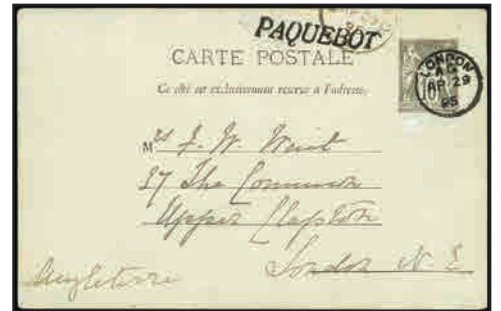 PAQUEBOT
CARTE POSTALE
Ce côté est exclusivement réservé à l'adresse.
LONDON
AP 29
95
Mrs J. W.
37 The Common
Upper Clapton
London N. E
Angleterre